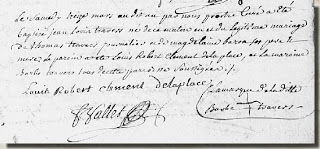 Le samedi treize mars au dit an par nous prestre Curé a eté
baptisé jean Louis travers né de ce matin en et du legitime mariage
de thomas travers journalier et de magdelaine
le parein a eté Louis Robert Clement delaplace, et la mareine
Barbe travers tous de cette paroisse Soussignés
Louis Robert Clement delaplace
La marque de la ditte
Barbe travers
Vallet